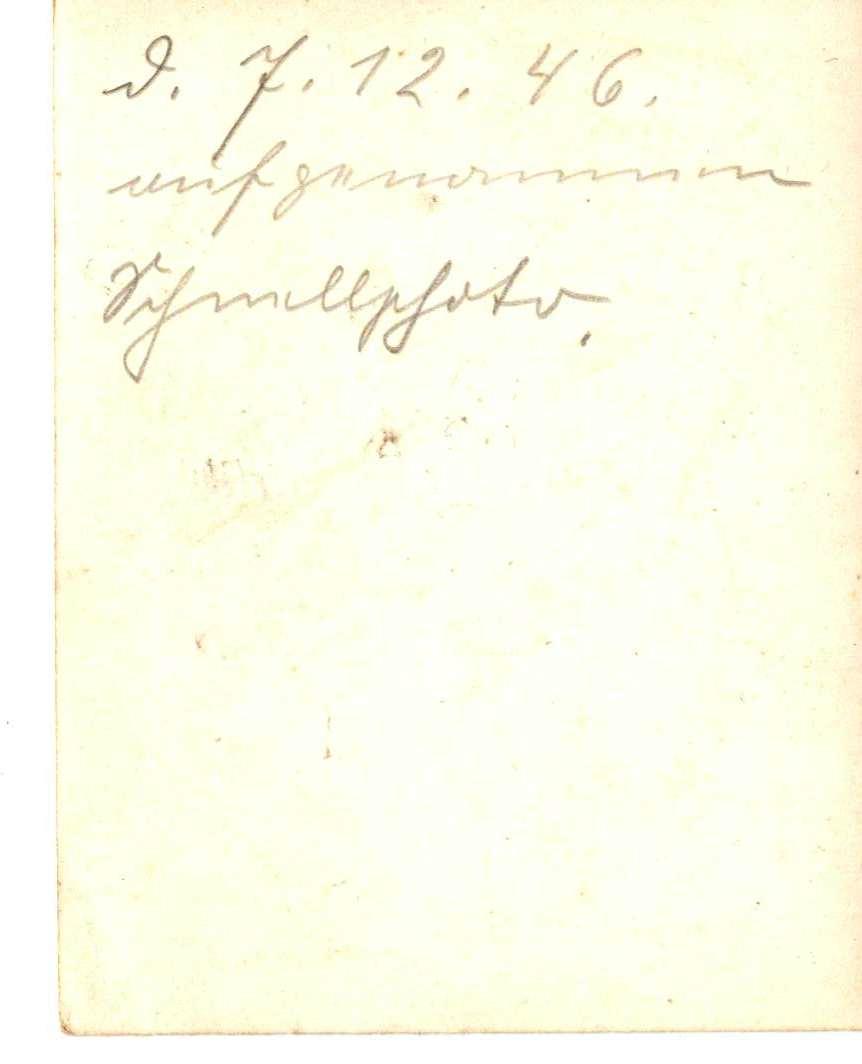 d. 7. 12. 46.
aufgenommen
Schnellphoto.